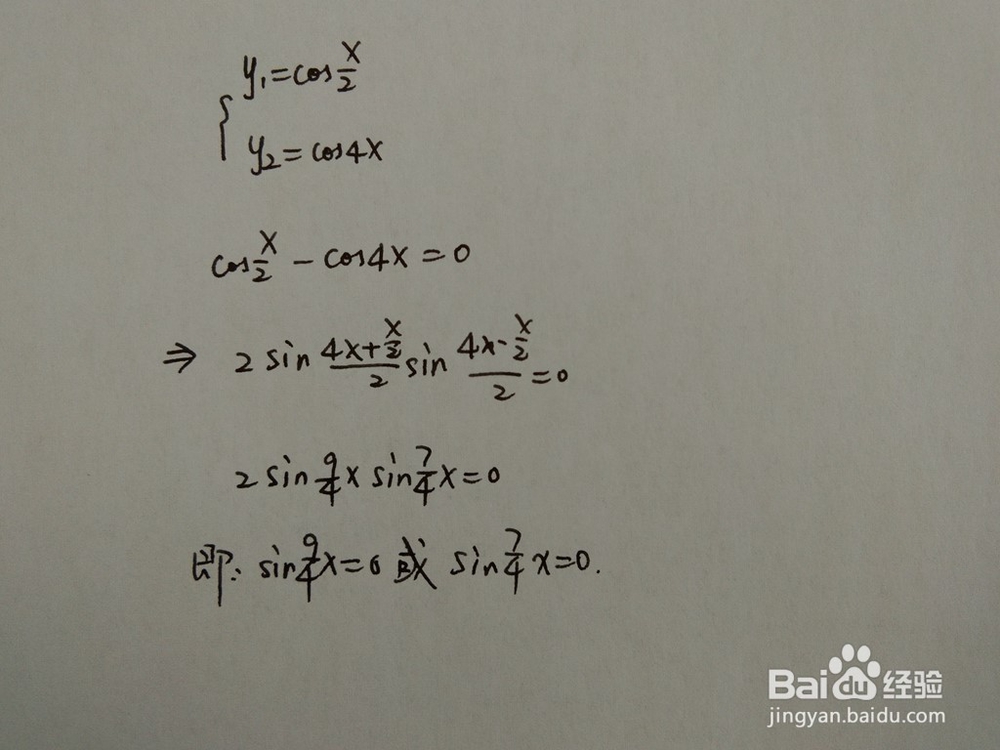 y₁=cos x/2
y₂=cos4x
cos x/2 - cos4x=0
⇒ 2 sin (4x+x/2)/2 sin (4x-x/2)/2 =0
2 sin 9/4 x sin 7/4 x=0
即: sin 9/4 x=0 或 sin 7/4 x=0.
Bai du 经验
jingyan.baidu.com